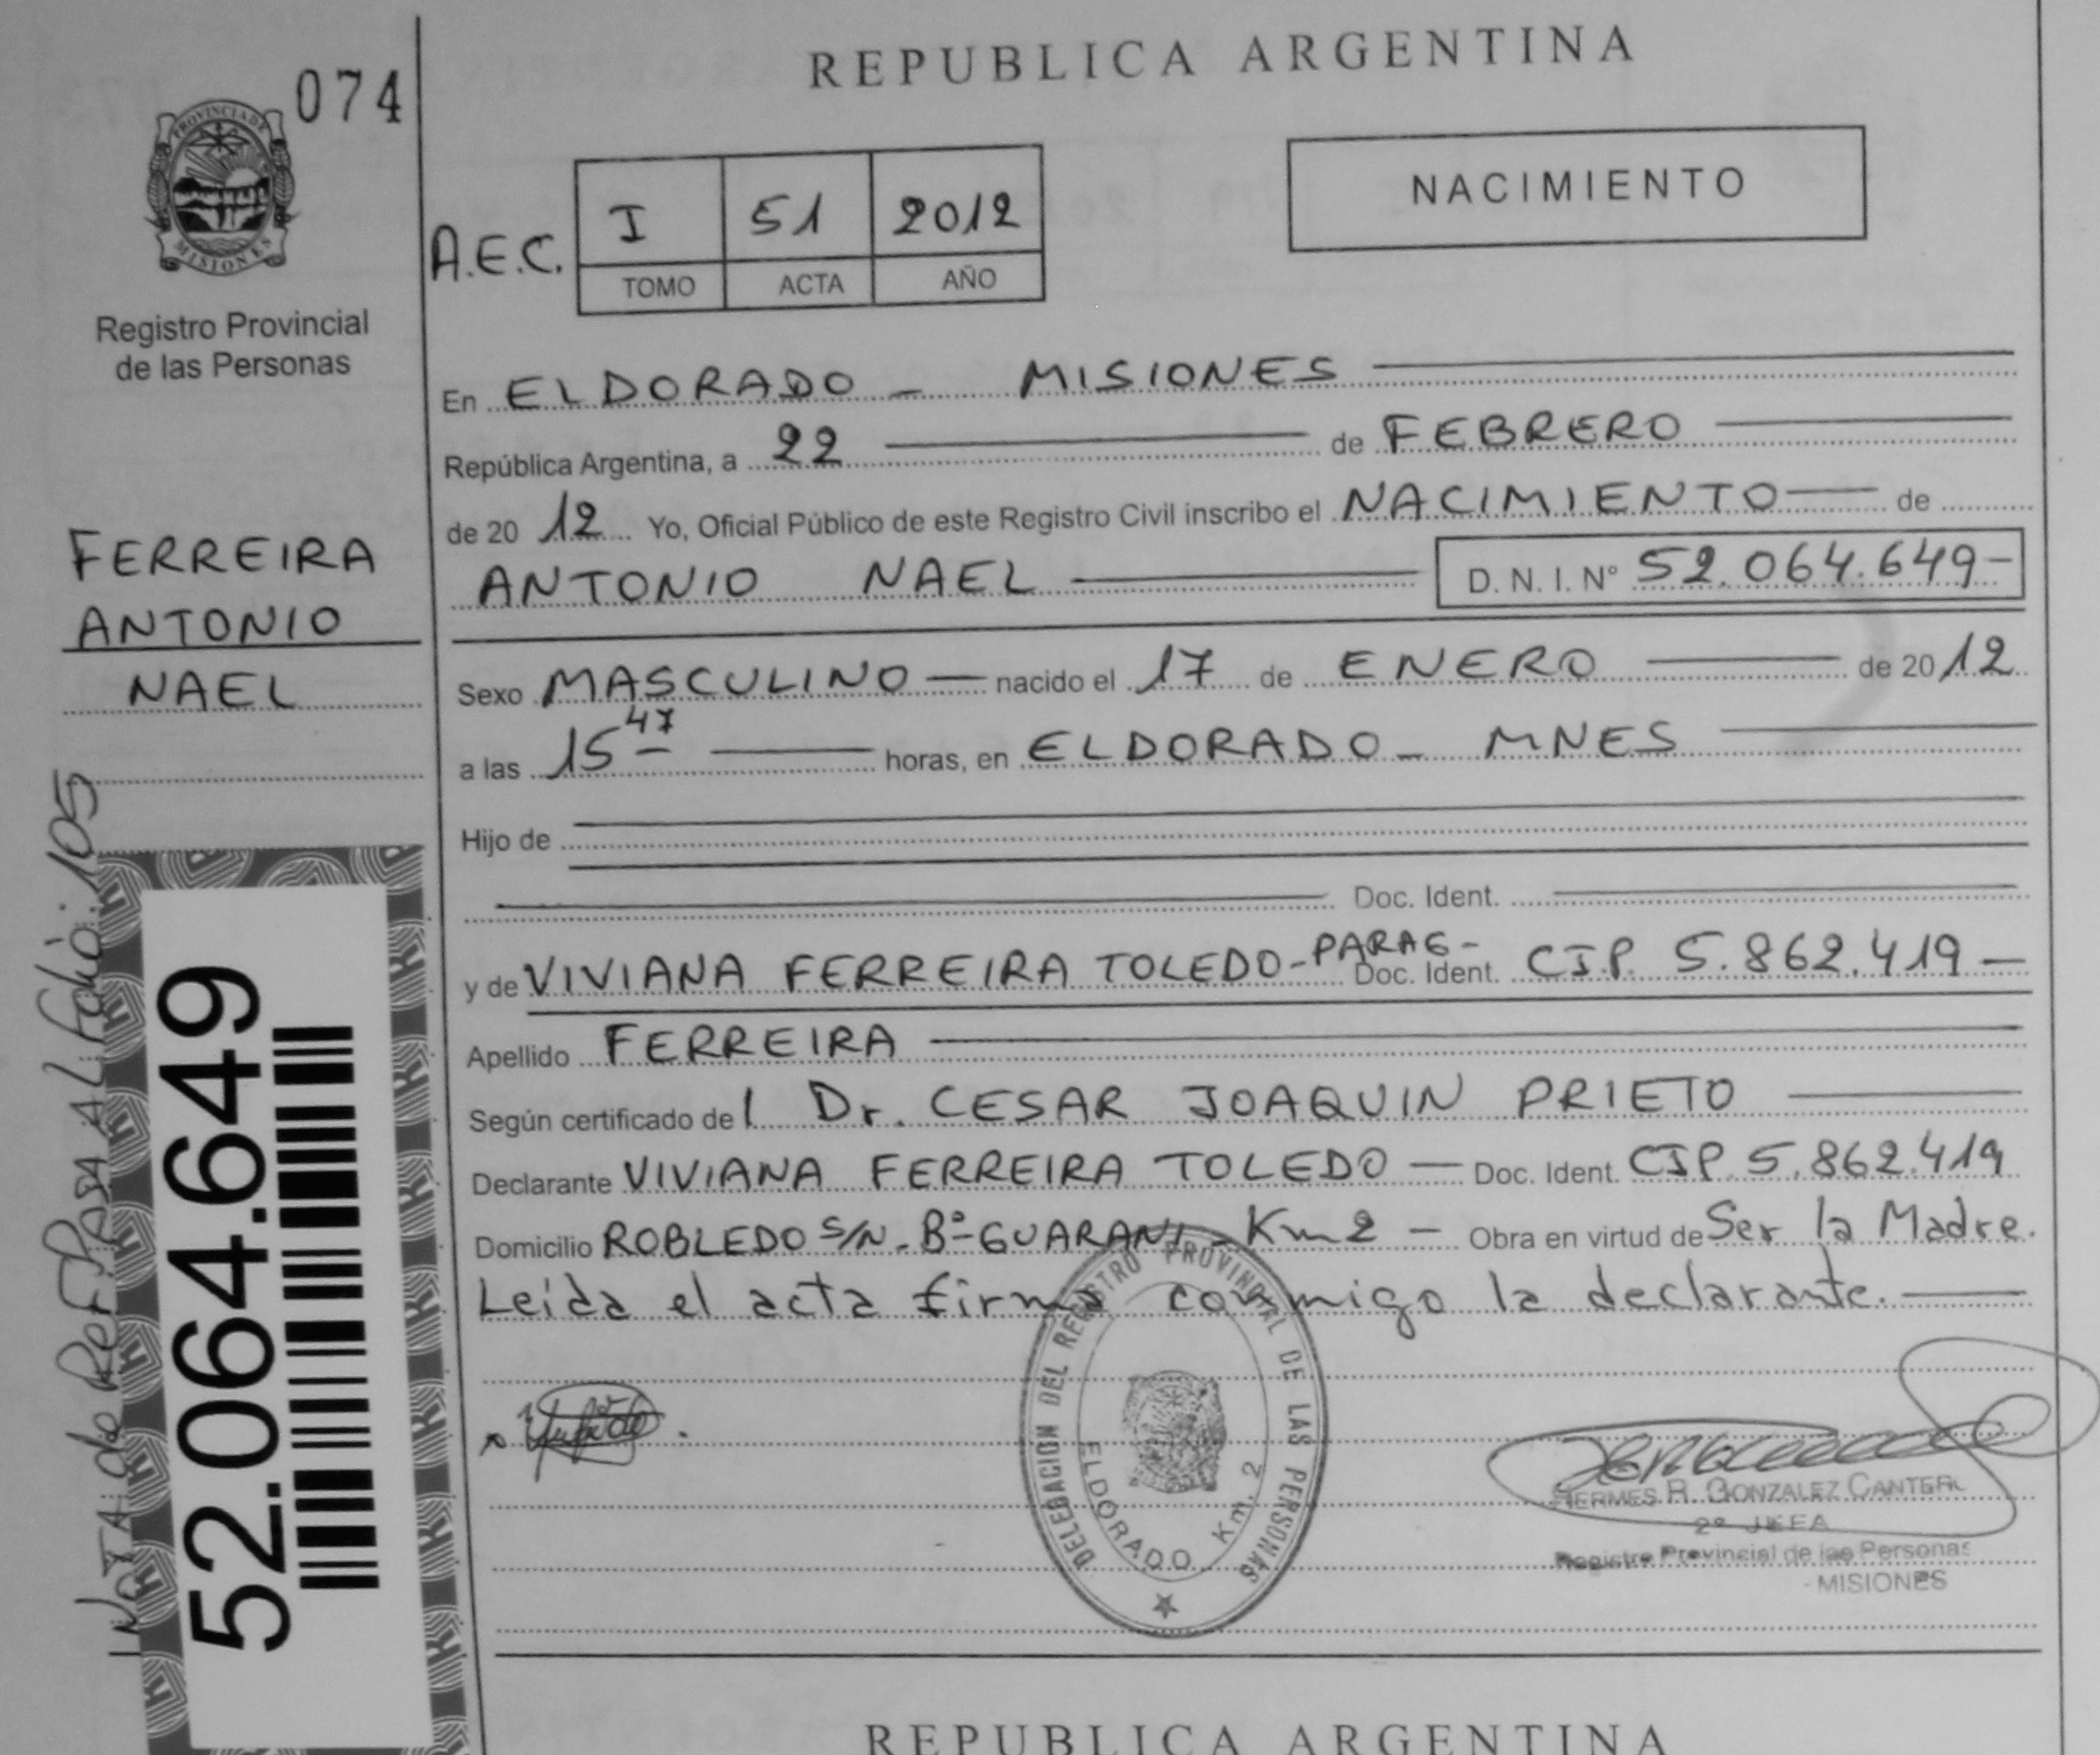 REPUBLICA ARGENTINA
074
PROVINCIA DE
MISIONES
Registro Provincial
de las Personas
NACIMIENTO
A.E.C.
I 51 2012
TOMO ACTA AÑO
En ELDORADO - MISIONES
República Argentina, a 22 de FEBRERO
de 20 12 Yo, Oficial Público de este Registro Civil inscribo el NACIMIENTO de
ANTONIO NAEL D. N. I. N° 52.064.649-
FERREIRA
ANTONIO
NAEL
Sexo MASCULINO nacido el 17 de ENERO de 20 12
a las 15 47 horas, en ELDORADO - MNES
Hijo de
Doc. Ident.
y de VIVIANA FERREIRA TOLEDO-PARAG- Doc. Ident. CIP. 5.862.419-
Apellido FERREIRA
Según certificado del Dr. CESAR JOAQUIN PRIETO
Declarante VIVIANA FERREIRA TOLEDO - Doc. Ident. CIP 5.862.419
Domicilio ROBLEDO S/N. Bº GUARANI - Km 2 - Obra en virtud de Ser la Madre.
Leida el acta firma conmigo la declarante.
NOTA de Ref Pasa AL Folio: 105
52.064.649
DELEGACION DEL REGISTRO PROVINCIAL DE LAS PERSONAS
ELDORADO Km. 2
HERMES R. GONZALEZ CANTERO
2º JEFA
Registro Provincial de las Personas
- MISIONES
REPUBLICA ARGENTINA